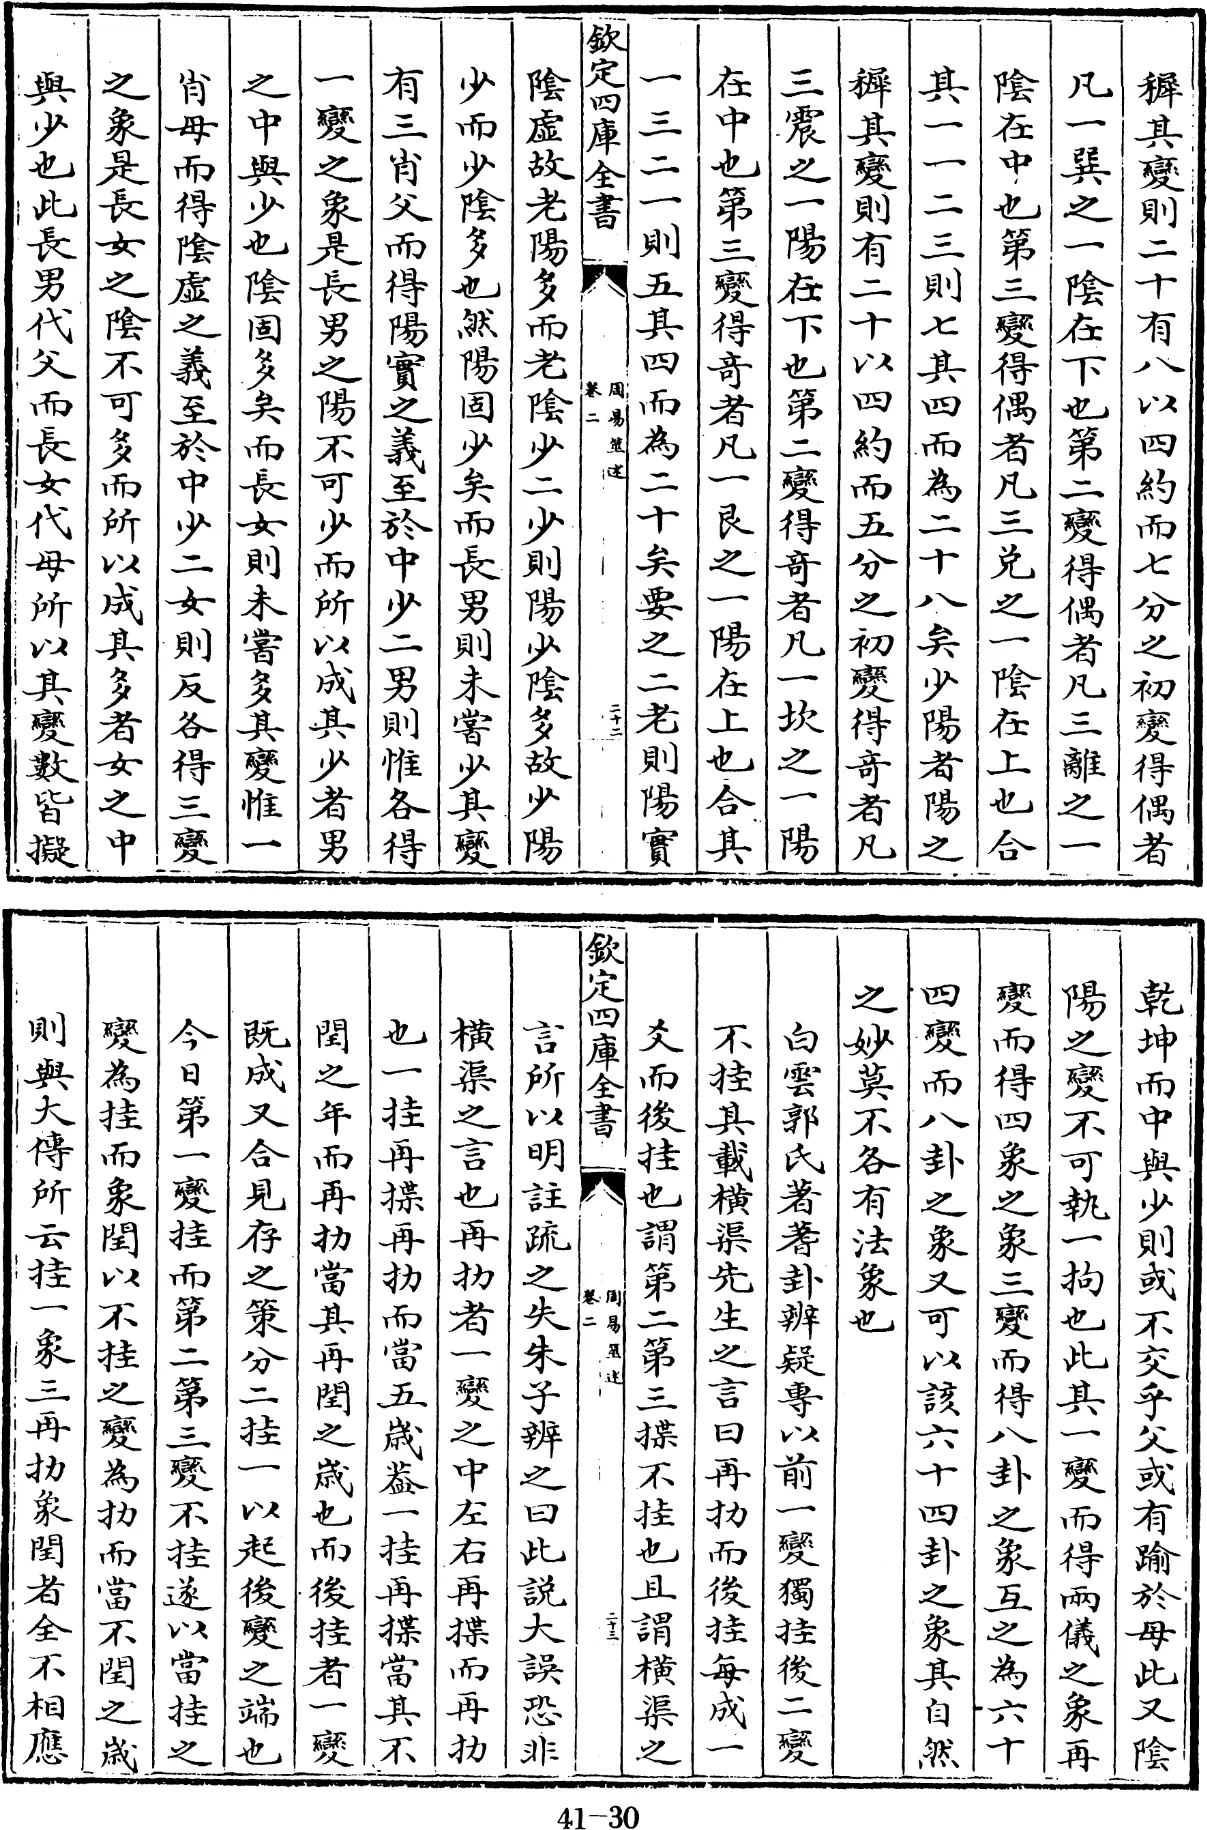 穉其變則二十有八以四約而七分之初變得偶者
凡一巽之一陰在下也第二變得偶者凡三離之一
陰在中也第三變得偶者凡三兌之一陰在上也合
其一一二三則七其四而為二十八矣少陽者陽之
穉其變則有二十以四約而五分之初變得奇者凡
三震之一陽在下也第二變得奇者凡一坎之一陽
在中也第三變得奇者凡一艮之一陽在上也合其
一三二一則五其四而為二十矣要之二老則陽實
欽定四庫全書
周易筮述
卷二
二十二
陰虛故老陽多而老陰少二少則陽少陰多故少陽
少而少陰多也然陽固少矣而長男則未嘗少其變
有三肖父而得陽實之義至於中少二男則惟各得
一變之象是長男之陽不可少而所以成其少者男
之中與少也陰固多矣而長女則未嘗多其變惟一
肖母而得陰虛之義至於中少二女則反各得三變
之象是長女之陰不可多而所以成其多者女之中
與少也此長男代父而長女代母所以其變數皆擬
乾坤而中與少則或不交乎父或有踰於母此又陰
陽之變不可執一拘也此其一變而得兩儀之象再
變而得四象之象三變而得八卦之象互之為六十
四變而八卦之象又可以該六十四卦之象其自然
之妙莫不各有法象也
白雲郭氏著蓍卦辨疑專以前一變獨挂後二變
不挂其載橫渠先生之言曰再扐而後挂每成一
爻而後挂也謂第二第三揲不挂也且謂橫渠之
欽定四庫全書
周易筮述
卷二
二十三
言所以明註疏之失朱子辨之曰此說大誤恐非
橫渠之言也再扐者一變之中左右再揲而再扐
也一挂再揲再扐而當五歲葢一挂再揲當其不
閏之年而再扐當其再閏之歲也而後挂者一變
既成又合見存之策分二挂一以起後變之端也
今日第一變挂而第二第三變不挂遂以當挂之
變為挂而象閏以不挂之變為扐而當不閏之歲
則與大傳所云挂一象三再扐象閏者全不相應
41-30